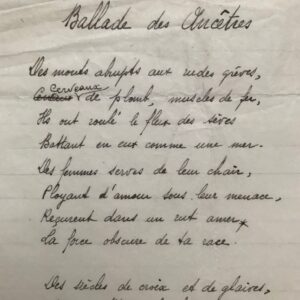 Ballade des Ancêtres
Des monts abrupts aux rudes grèves,
Cerveaux
de plomb, muscles de fer,
Ils ont roulé le fleuve des sèves
Battant en eux comme une mer.
Des femmes serves de leur chair,
Ployant d'amour sous leur menace,
Reçurent dans un rut amer
La force obscure de ta race.
Des siècles de croix et de glaives,